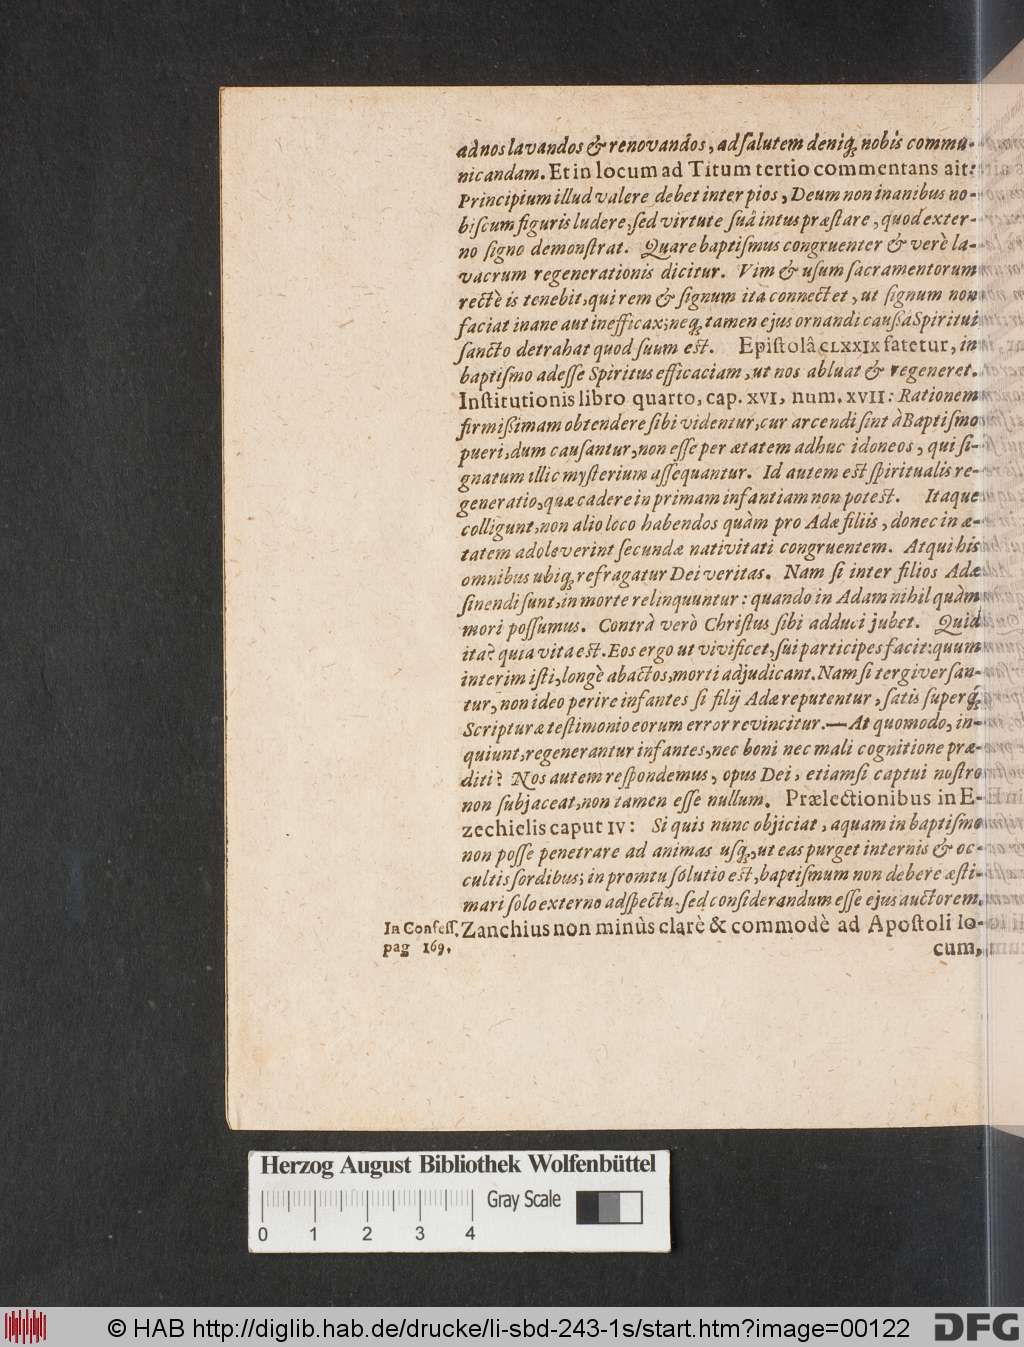 ad nos lavandos & renovandos, ad salutem deniq; nobis commu-
nicandam. Et in locum ad Titum tertio commentans ait:
Principium illud valere debet inter pios, Deum non inanibus no-
biscum figuris ludere, sed virtute suâ intus præstare, quod exter-
no signo demonstrat. Quare baptismus congruenter & verè la-
vacrum regenerationis dicitur. Vim & usum sacramentorum
rectè is tenebit, qui rem & signum ita connectet, ut signum non
faciat inane aut inefficax; neq; tamen ejus ornandi caußa Spiritui
sancto detrahat quod suum est. Epistolâ CLXXIX fatetur, in
baptismo adesse Spiritus efficaciam, ut nos abluat & regeneret.
Institutionis libro quarto, cap. XVI, num. XVII: Rationem
firmißimam obtendere sibi videntur, cur arcendi sint à Baptismo
pueri, dum causantur, non esse per ætatem adhuc idoneos, qui si-
gnatum illic mysterium assequantur. Id autem est spiritualis re-
generatio, quæ cadere in primam infantiam non potest. Itaque
colligunt, non alio loco habendos quàm pro Adæ filiis, donec in æ-
tatem adoleverint secundæ nativitati congruentem. Atqui his
omnibus ubiq; refragatur Dei veritas. Nam si inter filios Adæ
sinendi sunt, in morte relinquuntur: quando in Adam nihil quàm
mori possumus. Contrà verò Christus sibi adduci jubet. Quid
ita? quia vita est. Eos ergo ut vivificet, sui participes facit: quum
interim isti, longè abactos, morti adjudicant. Nam si tergiversan-
tur, non ideo perire infantes si filij Adæ reputentur, satis superq;
Scripturæ testimonio eorum error revincitur.—At quomodo, in-
quiunt, regenerantur infantes, nec boni nec mali cognitione præ-
diti? Nos autem respondemus, opus Dei, etiamsi captui nostro
non subjaceat, non tamen esse nullum. Prælectionibus in E-
zechielis caput IV: Si quis nunc objiciat, aquam in baptismo
non posse penetrare ad animas usq;, ut eas purget internis & oc-
cultis sordibus; in promtu solutio est, baptismum non debere æsti-
mari solo externo adspectu, sed considerandum esse ejus auctorem.
In Confess. Zanchius non minùs clarè & commodè ad Apostoli lo-
pag 169. cum,
Herzog August Bibliothek Wolfenbüttel
Gray Scale
0 1 2 3 4
© HAB http://diglib.hab.de/drucke/li-sbd-243-1s/start.htm?image=00122
DFG